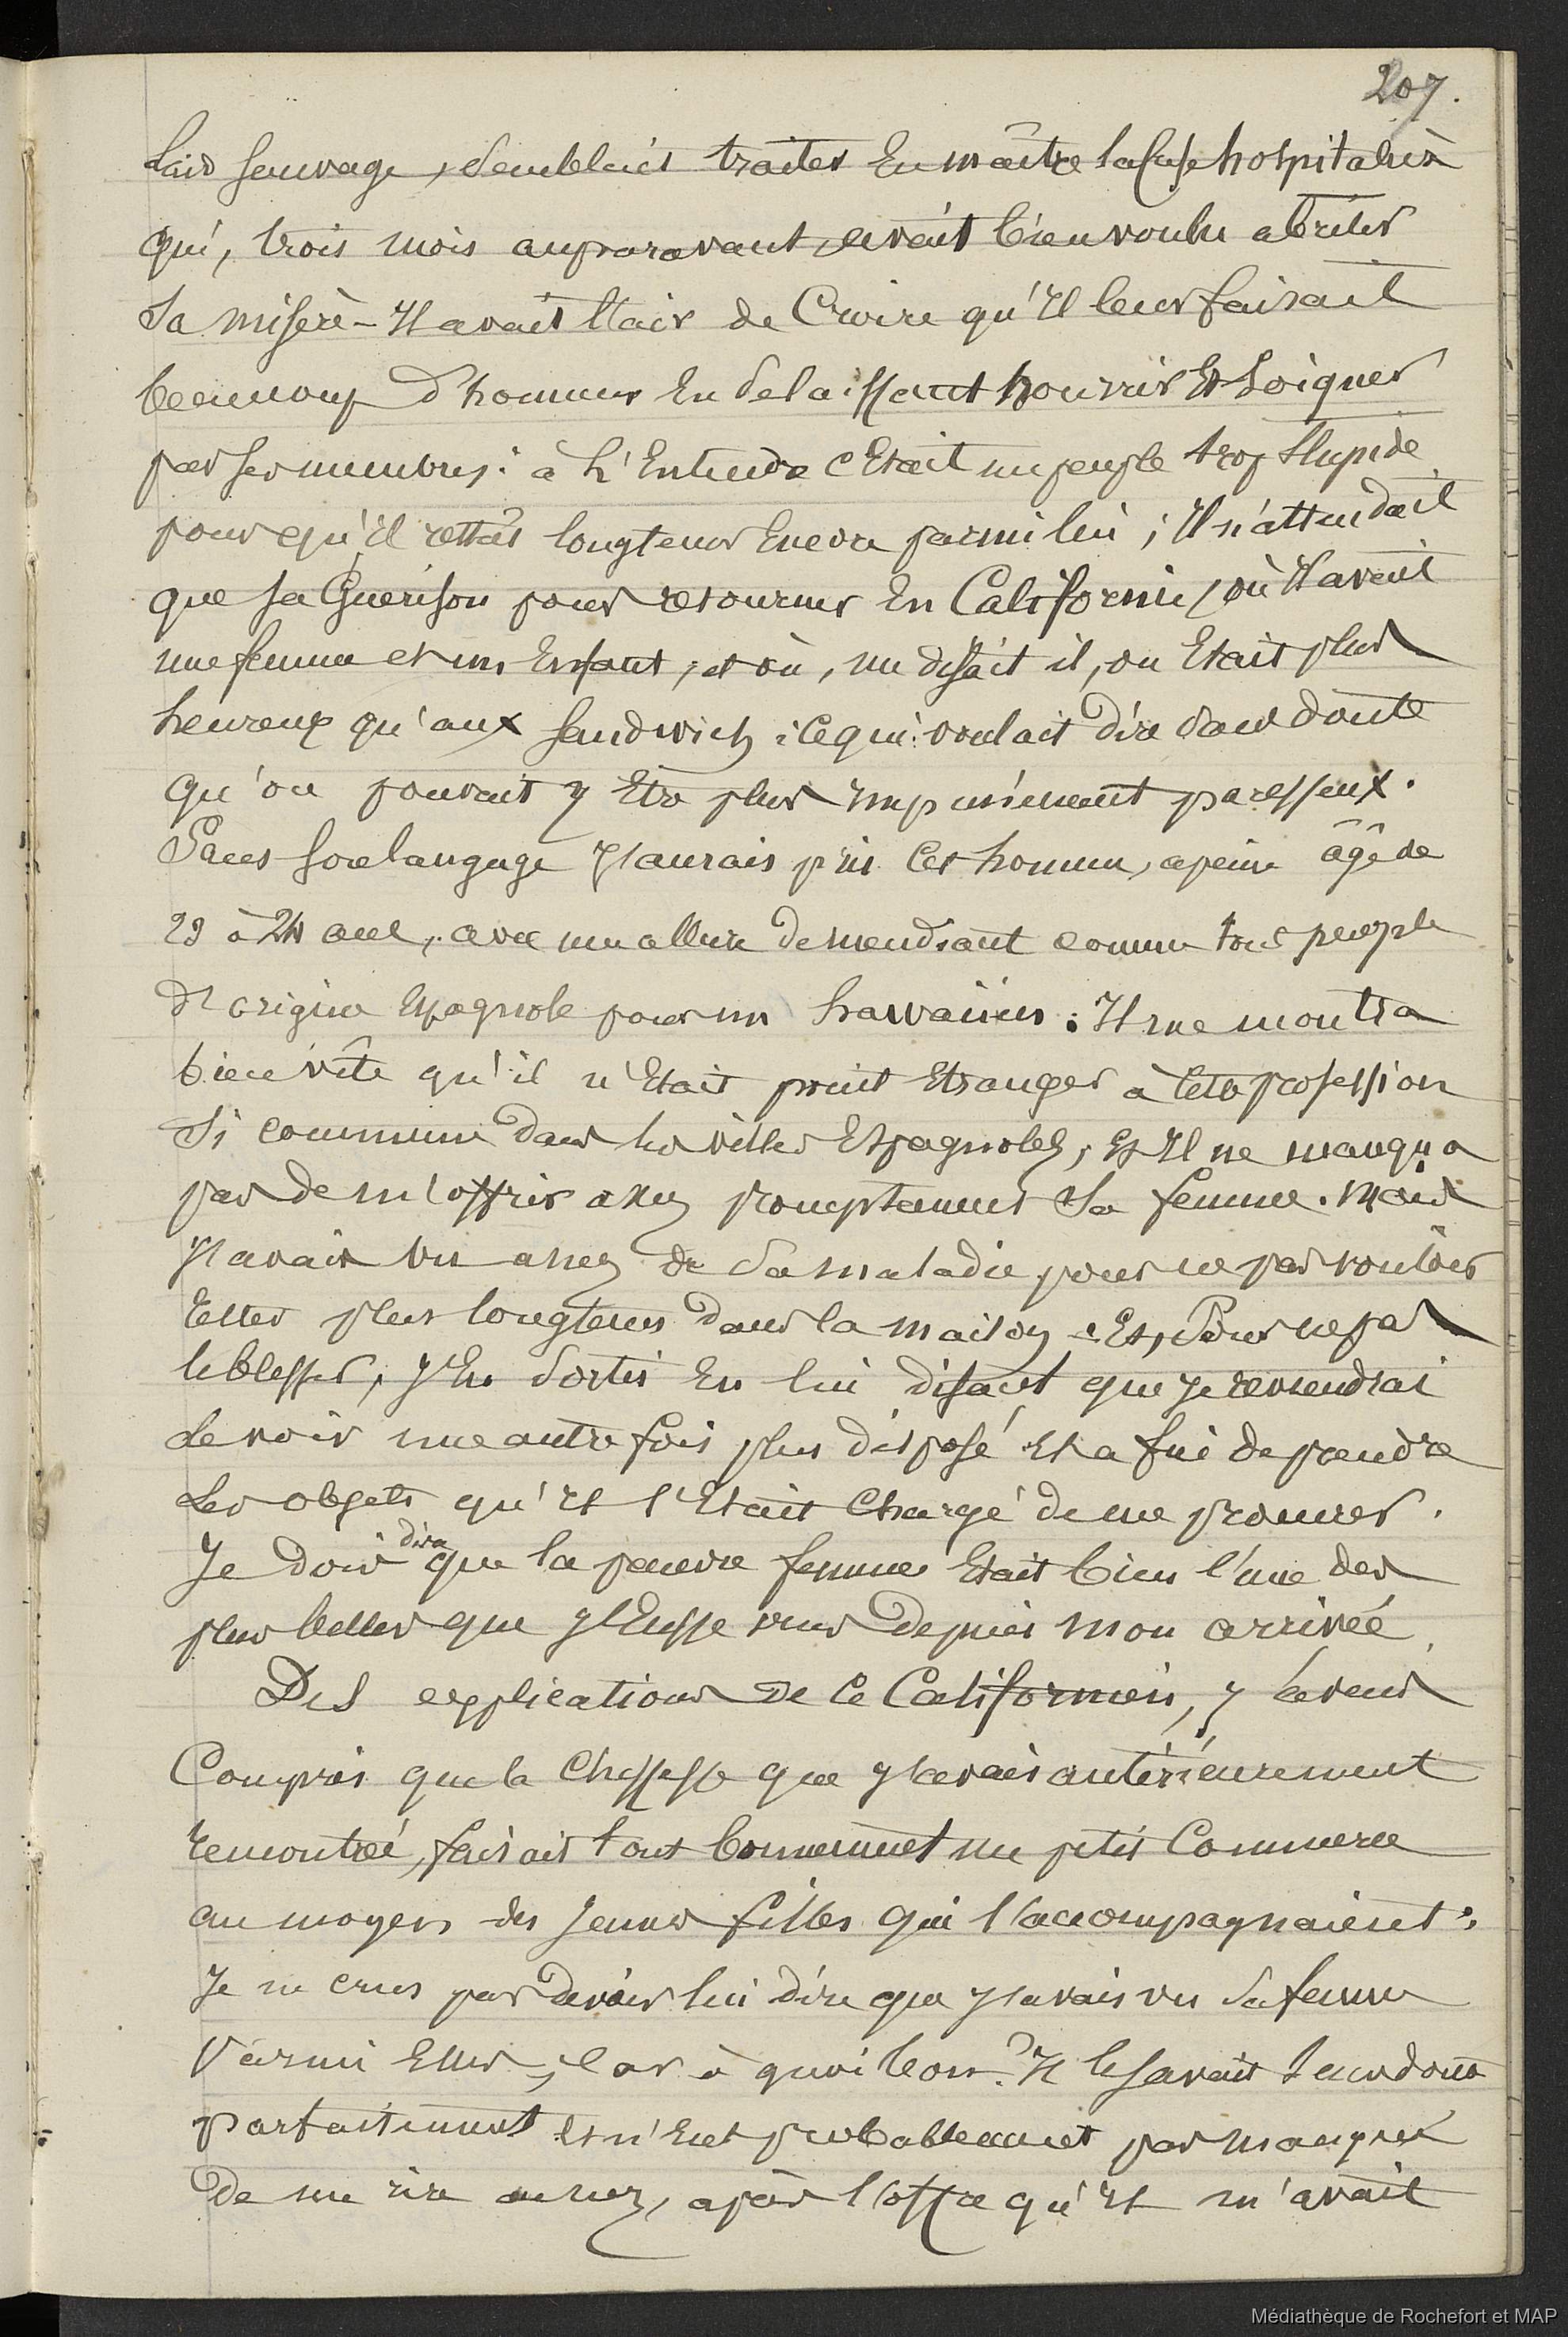 207.
laid sauvage, semblait traiter En maître la Case hospitalière
qui, trois mois auparavant, avait bien voulu abriter
Sa misère - Il avait l'air de Croire qu'Il leur faisait
beaucoup d'honneur En se laissant nourrir Et Soigner
par ses membres : à L'Entendre c'Etait un peuple trop Stupide
pour qu'Il restât longtems Encore parmi lui ; Il n'attendait
que sa Guérison pour retourner En Californie, où Il avait
une femme et un Enfant, et où, me disait il, on Etait plus
heureux qu'aux Sandwich ; ce qui voulait dire sans doute
qu'on pouvait y Etre plus impunément paresseux.
Sans son langage J'aurais pris Cet homme, a peine âgé de
23 à 24 ans, avec une allure de mendiant comme tout peuple
d'origine Espagnole pour un hawaïien. Il me montra
bien vîte qu'il n'Etait point Etranger à Cette profession
Si commune dans les villes Espagnoles, Et Il ne manqua
pas de m'offrir assez promptement Sa femme. Mais
J'avais vu assez de Sa maladie pour ne pas vouloir
rester plus longtems dans la maison. Et, Pour ne pas
le blesser, J'En Sortis En lui disant que Je reviendrai
le voir une autre fois plus disposé Et afin de prendre
Les objets qu'Il s'Etait Chargé de me procurer.
Je dois dire que la pauvre femme Etait bien l'une des
plus belles que J'Eusse vues depuis mon arrivée.
Des explications de Ce Californien, J'avais
Compris que la Cheffesse que J'avais antérieurement
rencontrée, faisait tout bonnement un petit Commerce
au moyen des Jeunes filles qui l'accompagnaient.
Je ne crus pas devoir lui dire que J'avais vu Sa femme
Parmi Elles, Car à quoi bon ? Il le savait sans doute
parfaitement Et n'Eut probablement pas manqué
de me rire au nez, après l'offre qu'Il m'avait
Médiathèque de Rochefort et MAP